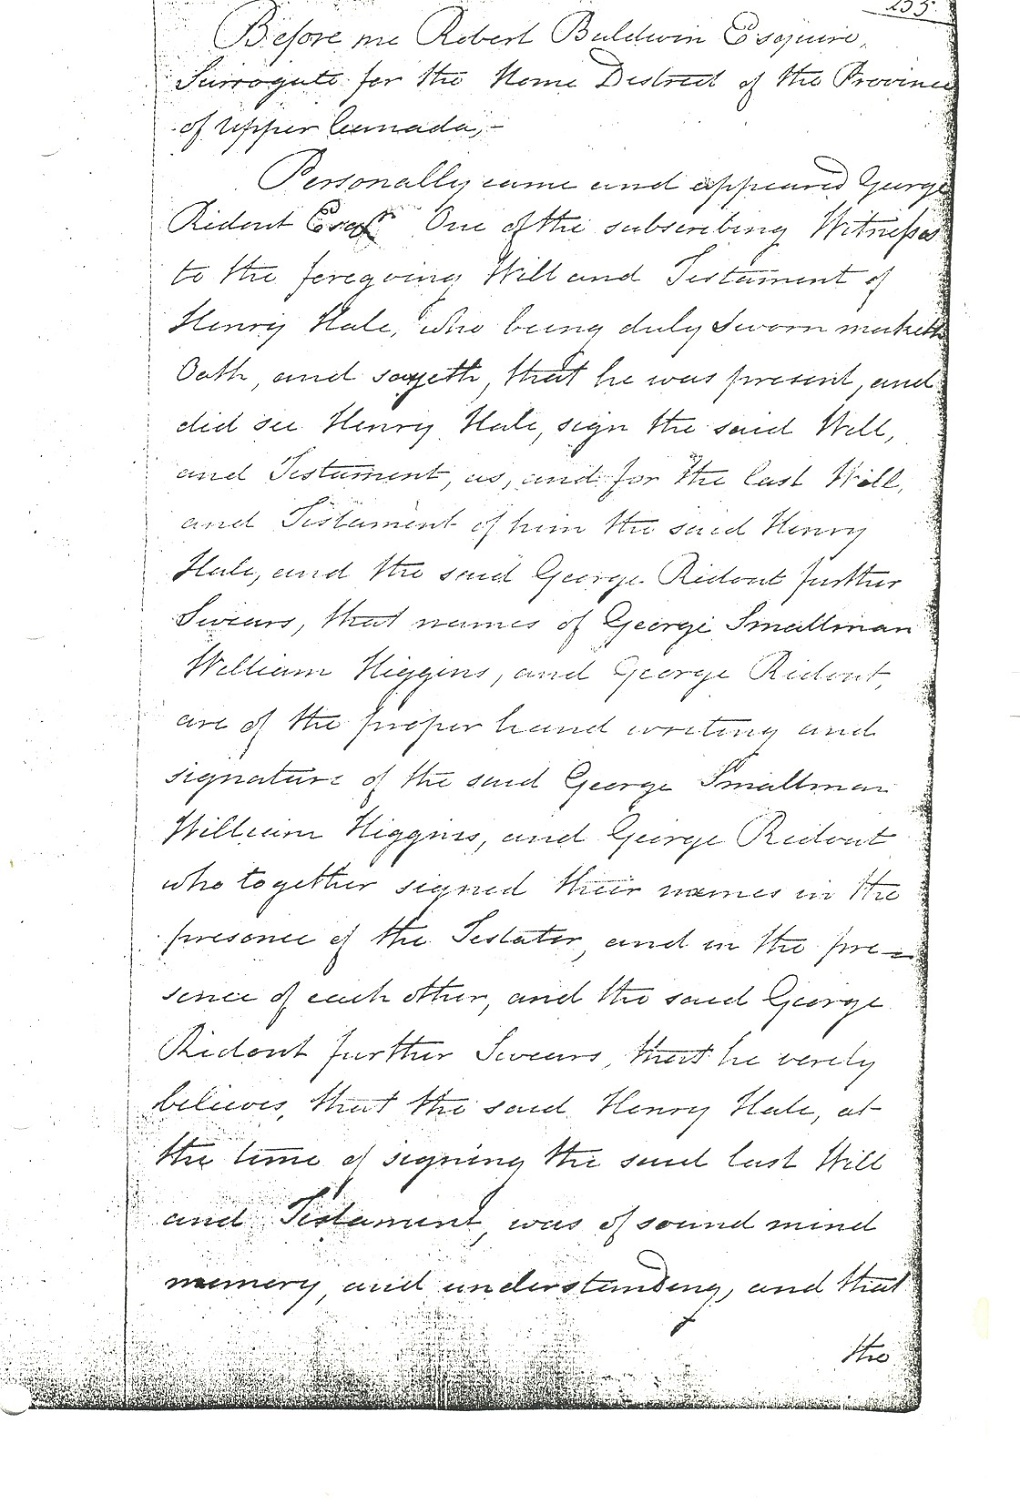 255
Before me Robert Baldwin Esquire,
Surrogate for the Home District of the Province
of Upper Canada,-
Personally came and appeared George
Ridout Esqr. One of the subscribing Witnesses
to the foregoing Will and Testament of
Henry Hale, who being duly Sworn maketh
Oath, and sayeth, that he was present, and
did see Henry Hale, sign the said Will,
and Testament, as, and for the last Will,
and Testament of him the said Henry
Hale, and the said George Ridout further
Swears, that names of George Smallman
William Higgins, and George Ridout,
are of the proper hand writing and
signature of the said George Smallman
William Higgins, and George Ridout
who together signed their names in the
presence of the Testator, and in the pre=
sence of each other, and the said George
Ridout further Swears, that he verely
believes, that the said Henry Hale, at
the time of signing the said last Will
and Testament, was of sound mind
memory, and understanding, and that
the